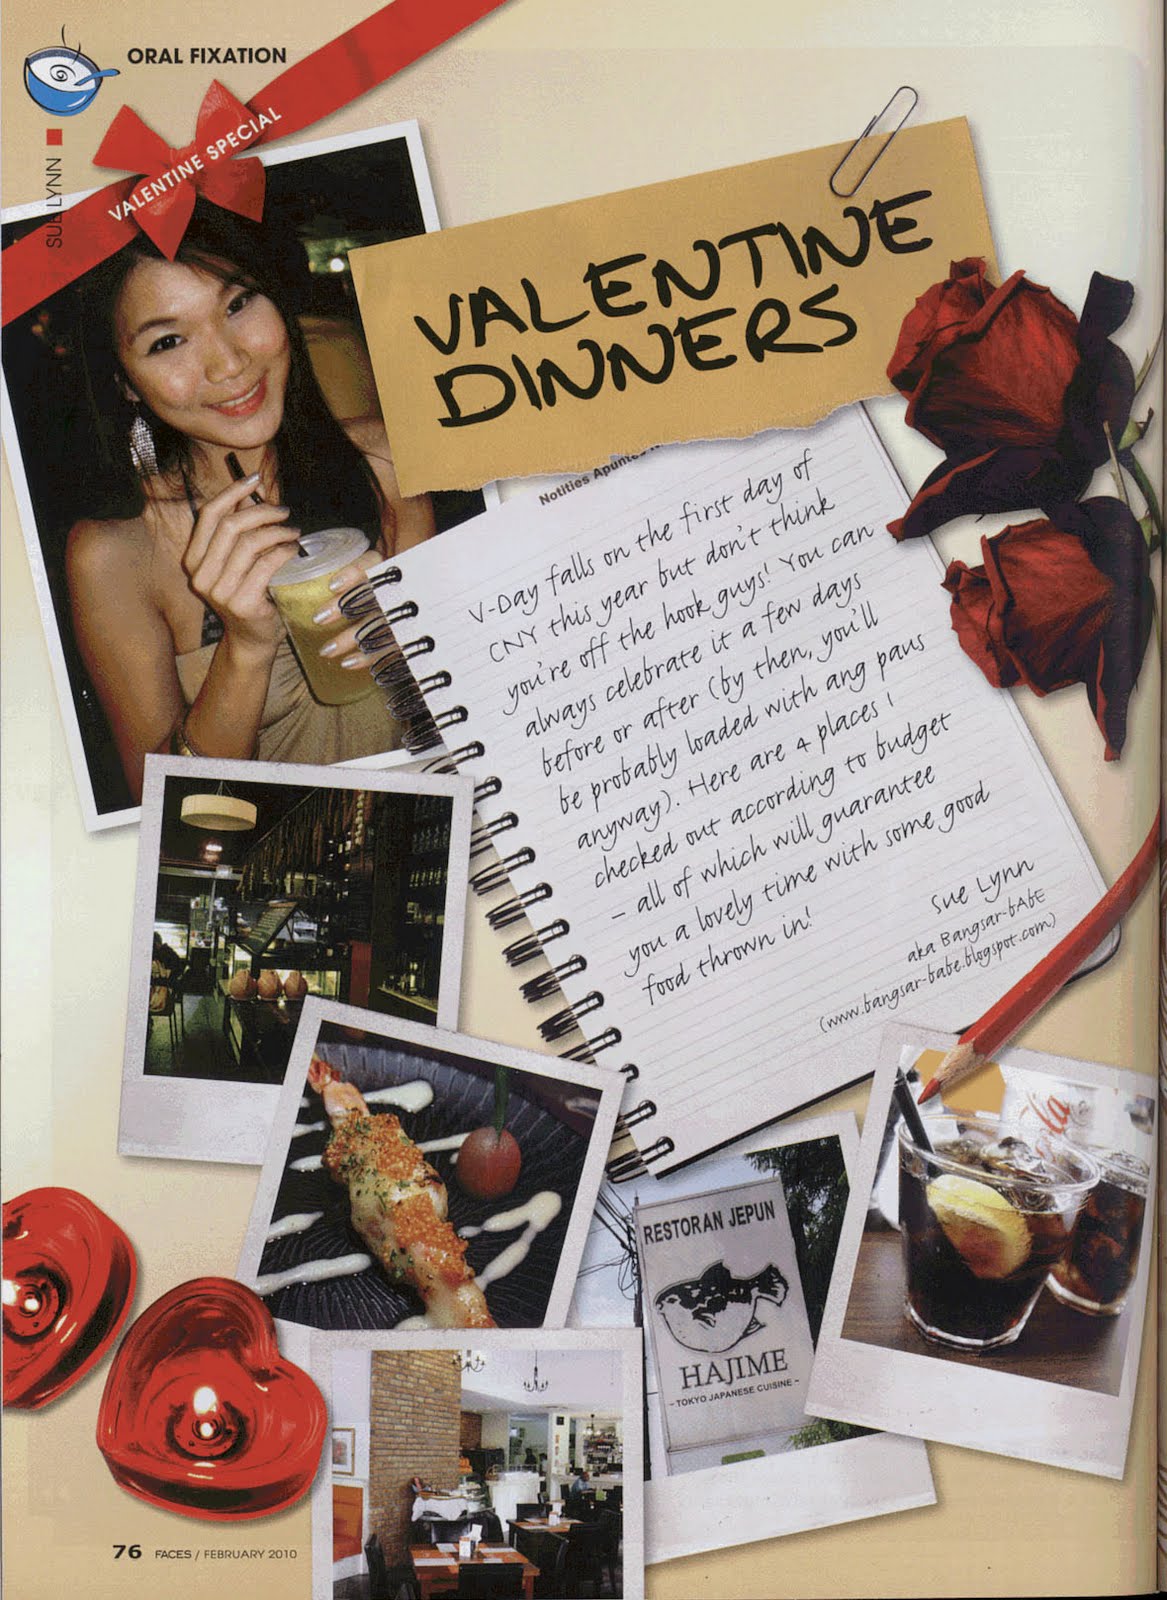 ORAL FIXATION
SUE LYNN
VALENTINE SPECIAL
VALENTINE
DINNERS
Notities Apuntes
V-Day falls on the first day of
CNY this year but don't think
you're off the hook guys! You can
always celebrate it a few days
before or after (by then, you'll
be probably loaded with ang paus
anyway). Here are 4 places I
checked out according to budget
– all of which will guarantee
you a lovely time with some good
food thrown in!
Sue Lynn
aka Bangsar-bAbE
(www.bangsar-babe.blogspot.com)
RESTORAN JEPUN
HAJIME
~ TOKYO JAPANESE CUISINE ~
76 FACES / FEBRUARY 2010